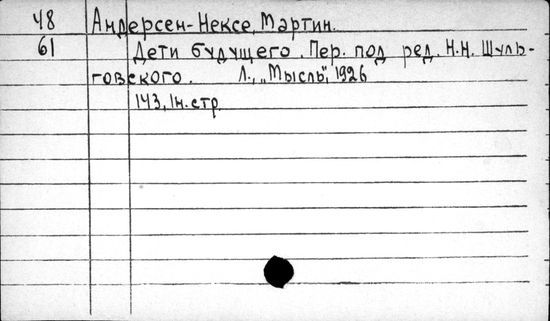 48 Андерсен-Нексе, Мартин.
61 Дети будущего. Пер. под ред. Н.Н. Шуль-
говского. Л., „Мысль", 1926
143, 1н.стр.